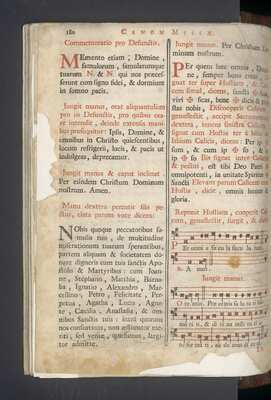 180 CANON MISSÆ.
Commemoratio pro Defunctis.
MEmento etiam, Domine,
famulorum, famularumque
tuarum N. & N. qui nos præces-
serunt cum signo fidei, & dormiunt
in somno pacis.
Jungit manus, orat aliquantulum
pro iis Defunctis, pro quibus ora-
re intendit, deinde extensis mani-
bus prosequitur: Ipsis, Domine, &
omnibus in Christo quiescentibus,
locum refrigerii, lucis, & pacis ut
indulgeas, deprecamur.
Jungit manus & caput inclinat.
Per eundem Christum Dominum
nostrum. Amen.
Manu dextera percutit sibi pe-
ctus, elata parum voce dicens:
NObis quoque peccatoribus fa-
mulis tuis, de multitudine
miserationum tuarum sperantibus,
partem aliquam & societatem do-
nare digneris cum tuis sanctis Apo-
stolis & Martyribus: cum Joan-
ne, Stephano, Matthia, Barna-
ba, Ignatio, Alexandro, Mar-
cellino, Petro, Felicitate, Per-
petua, Agatha, Lucia, Agne-
te, Cæcilia, Anastasia, & om-
nibus Sanctis tuis: intra quorum
nos consortium, non æstimator me-
riti, sed veniæ, quæsumus, largi-
tor admitte.
Jungit manus. Per Christum
minum nostrum.
PEr quem hæc omnia, Domi-
ne, semper bona creas,
gnat ter super Hostiam, &
cem simul, dicens, sancti ✠ ficas,
vivi ✠ ficas, bene ✠ dicis & præ-
stas nobis. Discooperit Calicem,
genuflectit, accipit Sacramentum
dextera, tenens sinistra Calicem:
signat cum Hostia ter à labio ad
labium Calicis, dicens: Per ip ✠
sum, & cum ip ✠ so, & in
ip ✠ so Bis signat inter Calicem
& pectus, est tibi Deo Patri ✠
omnipotenti, in unitate Spiritus ✠
Sancti Elevans parum Calicem cum
Hostia, dicit, omnis honor &
gloria.
Reponit Hostiam, cooperit Cali-
cem, genuflectit, surgit, &
PEr omni a sæ cu la sæcu lo rum.
℟. A men.
Jungit manus.